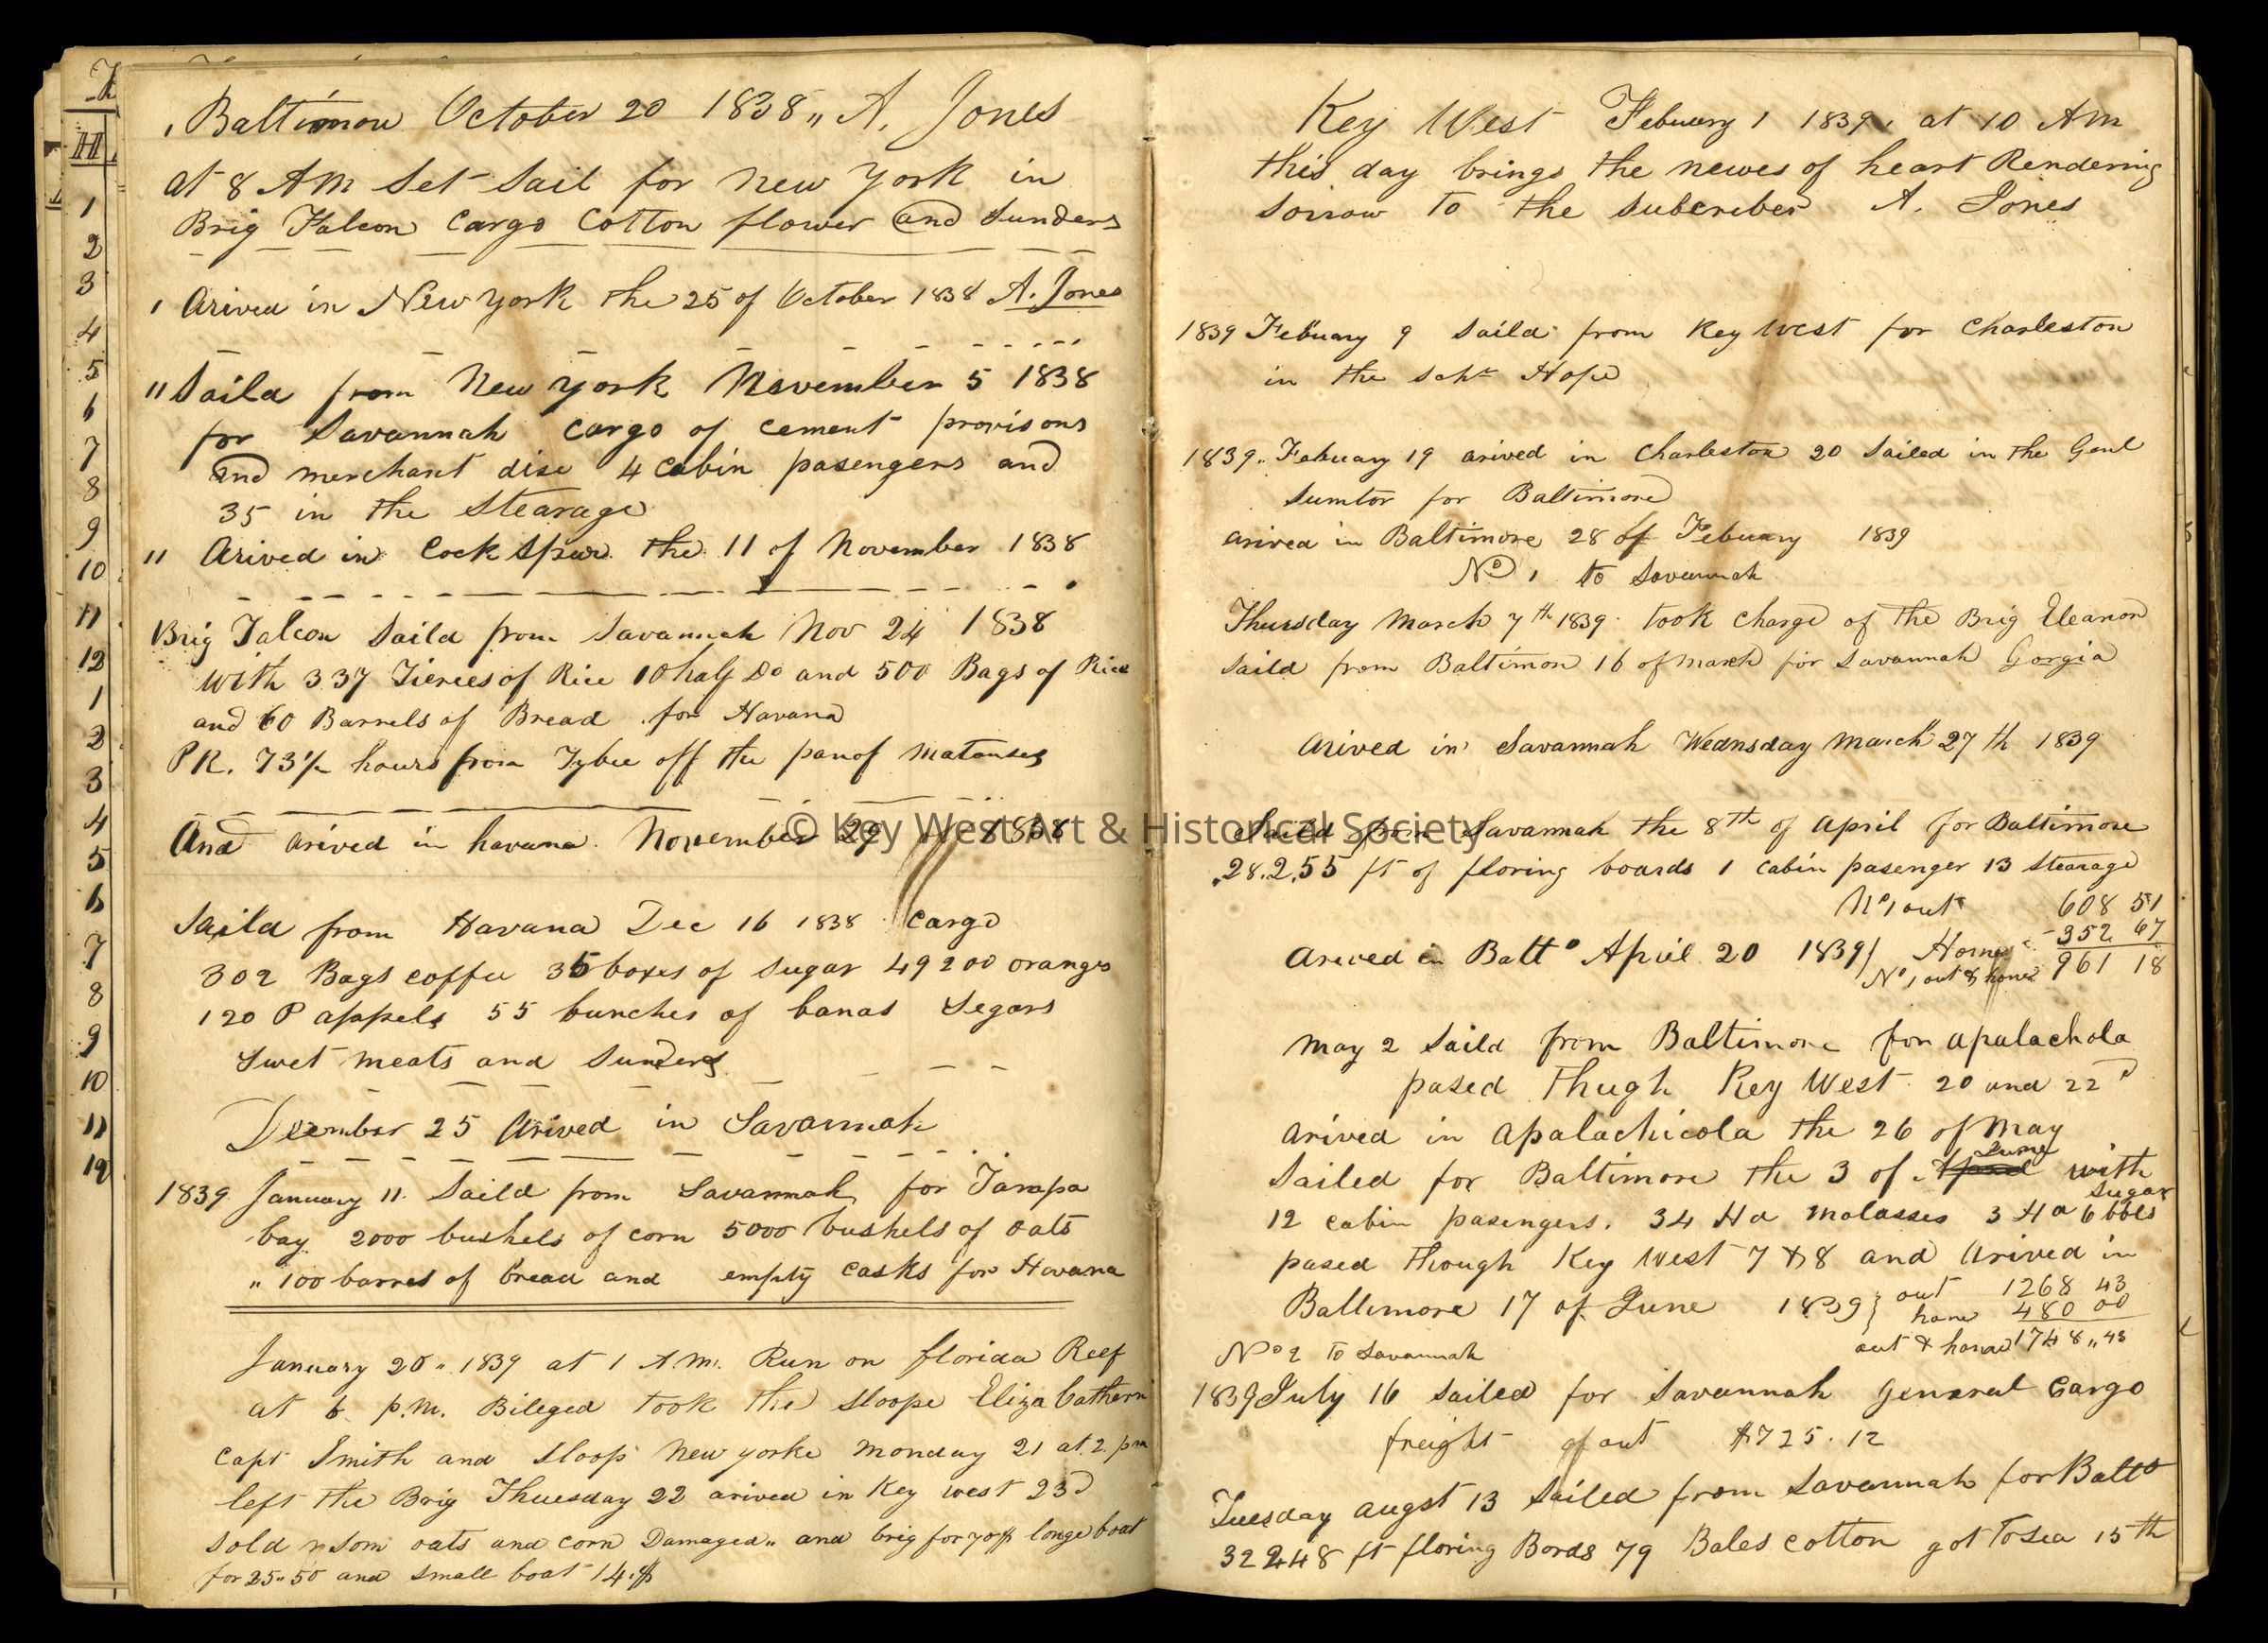 Baltimore October 20 1838 „ A. Jones
at 8 AM Set Sail for New York in
Brig Falcon Cargo Cotton flower and Sunders
Arived in New York the 25 of October 1838 A. Jones
" Saild from New York November 5 1838
for Savannah cargo of cement provisons
and merchant dise 4 cabin pasengers and
35 in the Stearage
" Arived in Cock Spur the 11 of November 1838
Brig Falcon Saild from Savannah Nov 24 1838
with 337 Tierces of Rice 10 half Do and 500 Bags of Rice
and 60 Barrels of Bread for Havana
PR. 73½ hours from Tybee off the pan of Matanses
And arived in havana November 29 of 1838
Saild from Havana Dec 16 1838 cargo
302 Bags coffee 35 boxes of Sugar 49200 oranges
120 P appels 55 bunches of banas Segars
Swet meats and Sunders
December 25 Arived in Savannah
1839 January 11 Saild from Savannah for Tampa
bay 2000 bushels of corn 5000 bushels of oats
„ 100 barres of bread and empty casks for Havana
January 20 „ 1839 at 1 AM. Run on florida Reef
at 6 p.m. Bileged took the Sloope Eliza Cathern
Capt Smith and Sloop New yorke Monday 21 at 2 pm
left the Brig Thuesday 22 arived in Key west 23d
Sold som oats and corn Damaged „ and brig for 70$ longe boat
for 25 „ 50 and Small boat 14 $
1
H
1
2
3
4
5
6
7
8
9
10
11
12
1
2
3
4
5
6
7
8
9
10
11
12
Key West Febuary 1 1839, at 10 AM
this day brings the newes of heart Rendering
Sorrow to the Subcriber A. Jones
1839 Febuary 9 Saild from Key West for Charleston
in the Schr Hope
1839 „ Febuary 19 arived in Charleston 20 Sailed in the Genl
Sumter for Baltimore
arived in Baltimore 28 of Febuary 1839
No 1 to Savannah
Thursday March 7th 1839 took charge of the Brig Eleanor
Saild from Baltimore 16 of march for Savannah Gorgia
Arived in Savannah Wednsday March 27th 1839
Saild from Savannah the 8th of April for Baltimore
28.255 ft of floring boards 1 cabin pasenger 13 Stearage
No 1 out 608 51
Arived in Balto April 20 1839 } Home 352 67
No 1 out & home 961 18
May 2 Saild from Baltimore for apalachola
pased thugh Key West 20 and 22d
arived in Apalachicola the 26 of May
Sailed for Baltimore the 3 of June with
12 cabin pasengers. 34 Hd Molasses 3 Hd 6 bbls Sugar
pased though Key West 7 & 8 and Arived in
Baltimore 17 of June 1839 } out 1268 43
home 480 00
out & home 1748 „ 43
No 2 to Savannah
1839 July 16 Sailed for Savannah General Cargo
freight of out $725.12
Tuesday augst 13 Sailed from Savannah for Balto
32248 ft floring Bords 79 Bales cotton got to Sea 15th
© Key West Art & Historical Society